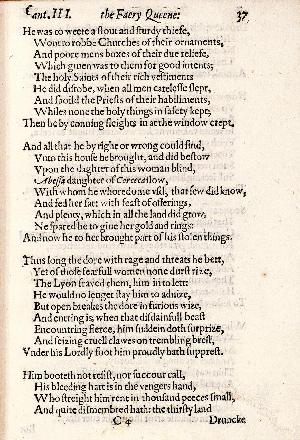 Cant. III. the Faery Queene. 37
He was to weete a stout and sturdy thiefe,
Wont to robbe Churches of their ornaments,
And poore mens boxes of their due reliefe,
Which giuen was to them for good intents;
The holy Saints of their rich vestiments
He did disrobe, when all men carelesse slept,
And spoild the Priests of their habiliments,
Whiles none the holy things in safety kept;
Then he by cunning sleights in at the window crept.
And all that he by right or wrong could find,
Vnto this house he brought, and did bestow
Vpon the daughter of this woman blind,
Abessa daughter of Corceca slow,
With whom he whoredome vsd, that few did know,
And fed her fatt with feast of offerings,
And plenty, which in all the land did grow;
Ne spared he to giue her gold and rings:
And now he to her brought part of his stolen things.
Thus long the dore with rage and threats he bett,
Yet of those fearfull women none durst rize,
The Lyon frayed them, him in to lett:
He would no lenger stay him to aduize,
But open breakes the dore in furious wize,
And entring is; when that disdainfull beast
Encountring fierce, him suddein doth surprize,
And seizing cruell clawes on trembling brest,
Vnder his Lordly foot him proudly hath supprest.
Him booteth not resist, nor succour call,
His bleeding hart is in the vengers hand,
Who streight him rent in thousand peeces small,
And quite dismembred hath: the thirsty land
C 4 Druncke